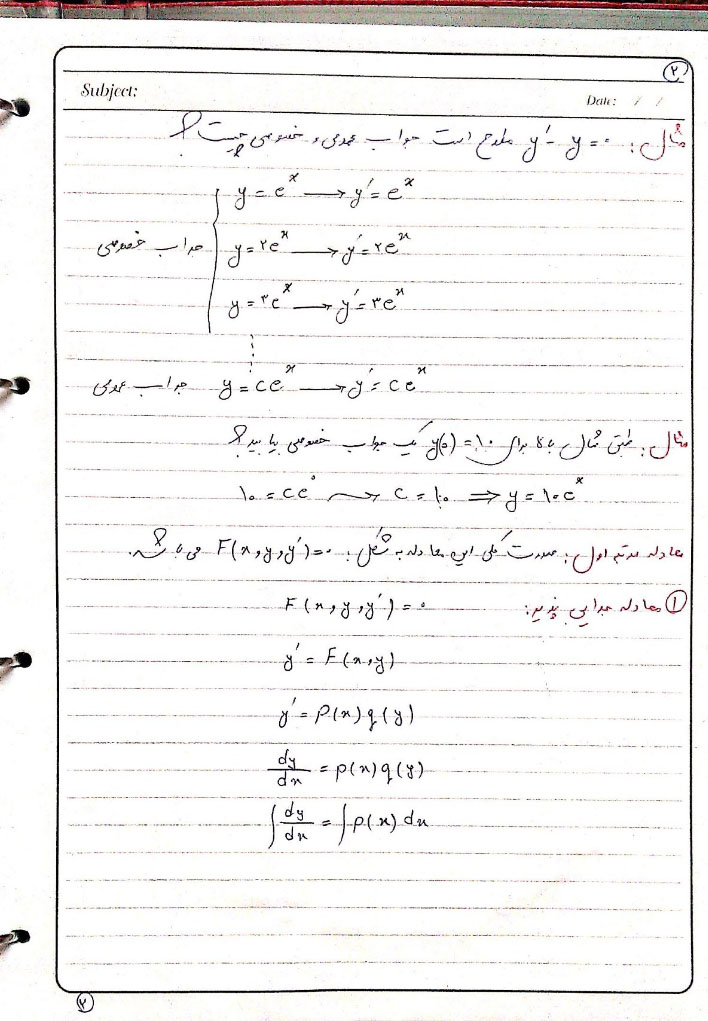 ۲
Subject:
Date: / /
مثال: y′ - y = ۰ مطرح است جواب عمومی و خصوصی چیست؟
y = e^x → y′ = e^x
جواب خصوصی y = ۲e^x → y′ = ۲e^x
y = ۳e^x → y′ = ۳e^x
⋮
جواب عمومی y = ce^x → y′ = ce^x
مثال: طبق مثال بالا برای y(۰) = ۱۰ یک جواب خصوصی بیابید؟
۱۰ = ce^۰ → c = ۱۰ ⇒ y = ۱۰e^x
معادله مرتبه اول: صورت کلی این معادله به شکل: F(x, y, y′) = ۰ می باشد.
① معادله جدایی پذیر: F(x, y, y′) = ۰
y′ = F(x, y)
y′ = p(x) q(y)
dy/dx = p(x) q(y)
∫ dy/dx = ∫ p(x) dx
۲